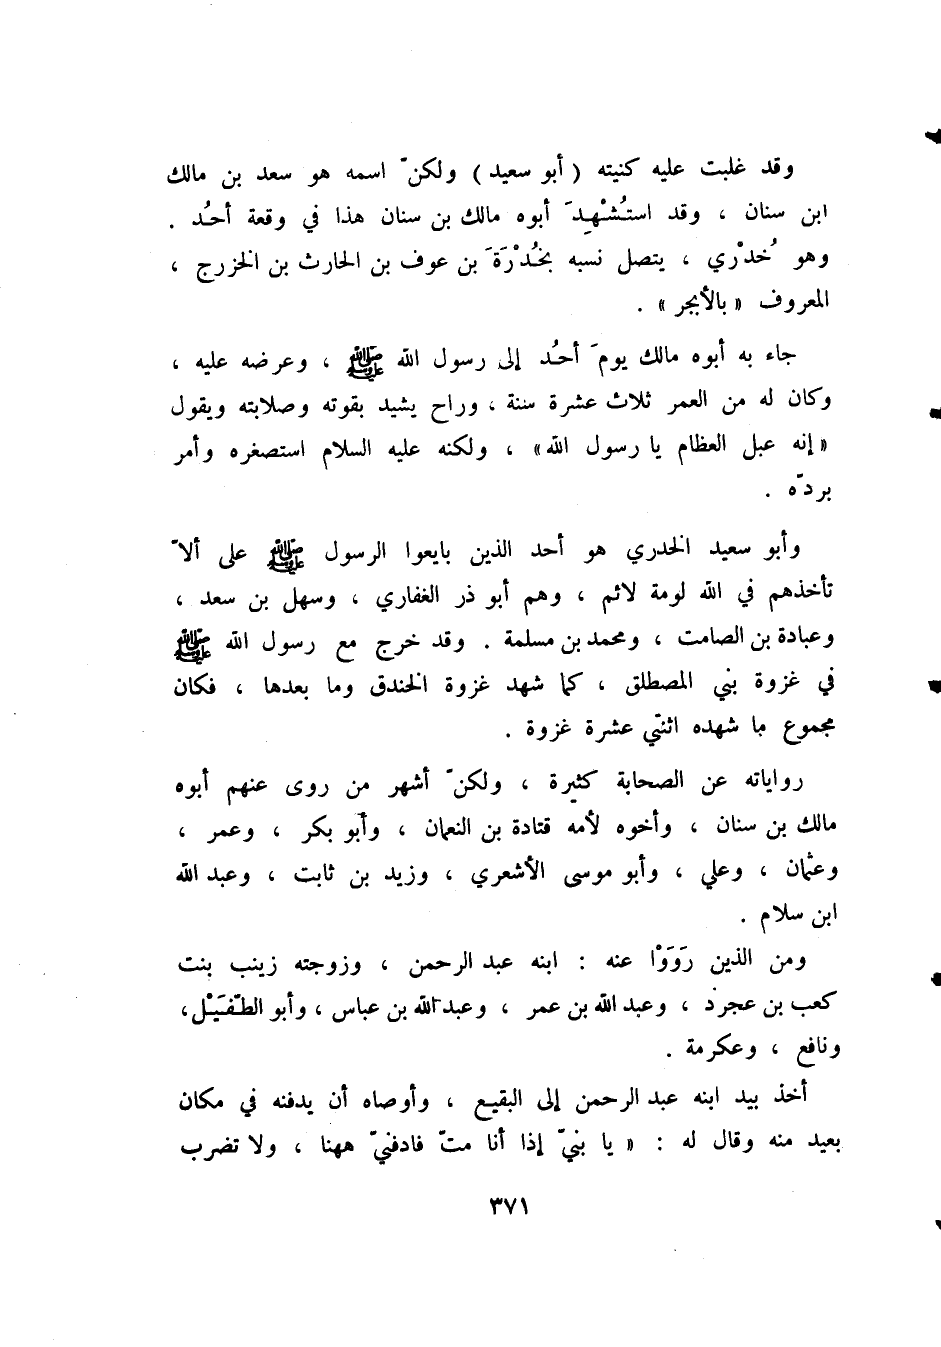 وقد غلبت عليه كنيته ( أبو سعيد ) ولكنّ اسمه هو سعد بن مالك
ابن سنان ، وقد استُشْهِدَ أبوه مالك بن سنان هذا في وقعة أحُد .
وهو خُدْري ، يتصل نسبه بخُدْرَةَ بن عوف بن الحارث بن الخزرج ،
المعروف « بالأبجر » .
جاء به أبوه مالك يومَ أحُد إلى رسول الله ﷺ ، وعرضه عليه ،
وكان له من العمر ثلاث عشرة سنة ، وراح يشيد بقوته وصلابته ويقول
« إنه عبل العظام يا رسول الله » ، ولكنه عليه السلام استصغره وأمر
بردّه .
وأبو سعيد الخدري هو أحد الذين بايعوا الرسول ﷺ على ألاّ
تأخذهم في الله لومة لائم ، وهم أبو ذر الغفاري ، وسهل بن سعد ،
وعبادة بن الصامت ، ومحمد بن مسلمة . وقد خرج مع رسول الله ﷺ
في غزوة بني المصطلق ، كما شهد غزوة الخندق وما بعدها ، فكان
مجموع ما شهده اثنتي عشرة غزوة .
رواياته عن الصحابة كثيرة ، ولكنّ أشهر من روى عنهم أبوه
مالك بن سنان ، وأخوه لأمه قتادة بن النعمان ، وأبو بكر ، وعمر ،
وعثمان ، وعلي ، وأبو موسى الأشعري ، وزيد بن ثابت ، وعبد الله
ابن سلام .
ومن الذين رَوَوْا عنه : ابنه عبد الرحمن ، وزوجته زينب بنت
كعب بن عجرد ، وعبد الله بن عمر ، وعبد الله بن عباس ، وأبو الطّفَيْل ،
ونافع ، وعكرمة .
أخذ بيد ابنه عبد الرحمن إلى البقيع ، وأوصاه أن يدفنه في مكان
بعيد منه وقال له : « يا بنيّ إذا أنا متّ فادفنيّ ههنا ، ولا تضرب
٣٧١